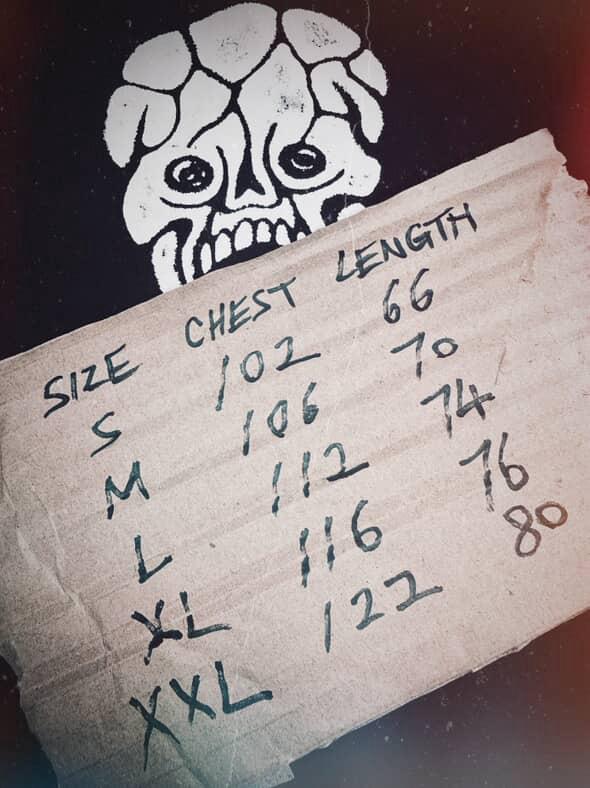 SIZE CHEST LENGTH
S 102 66
M 106 70
L 112 74
XL 116 76
XXL 122 80